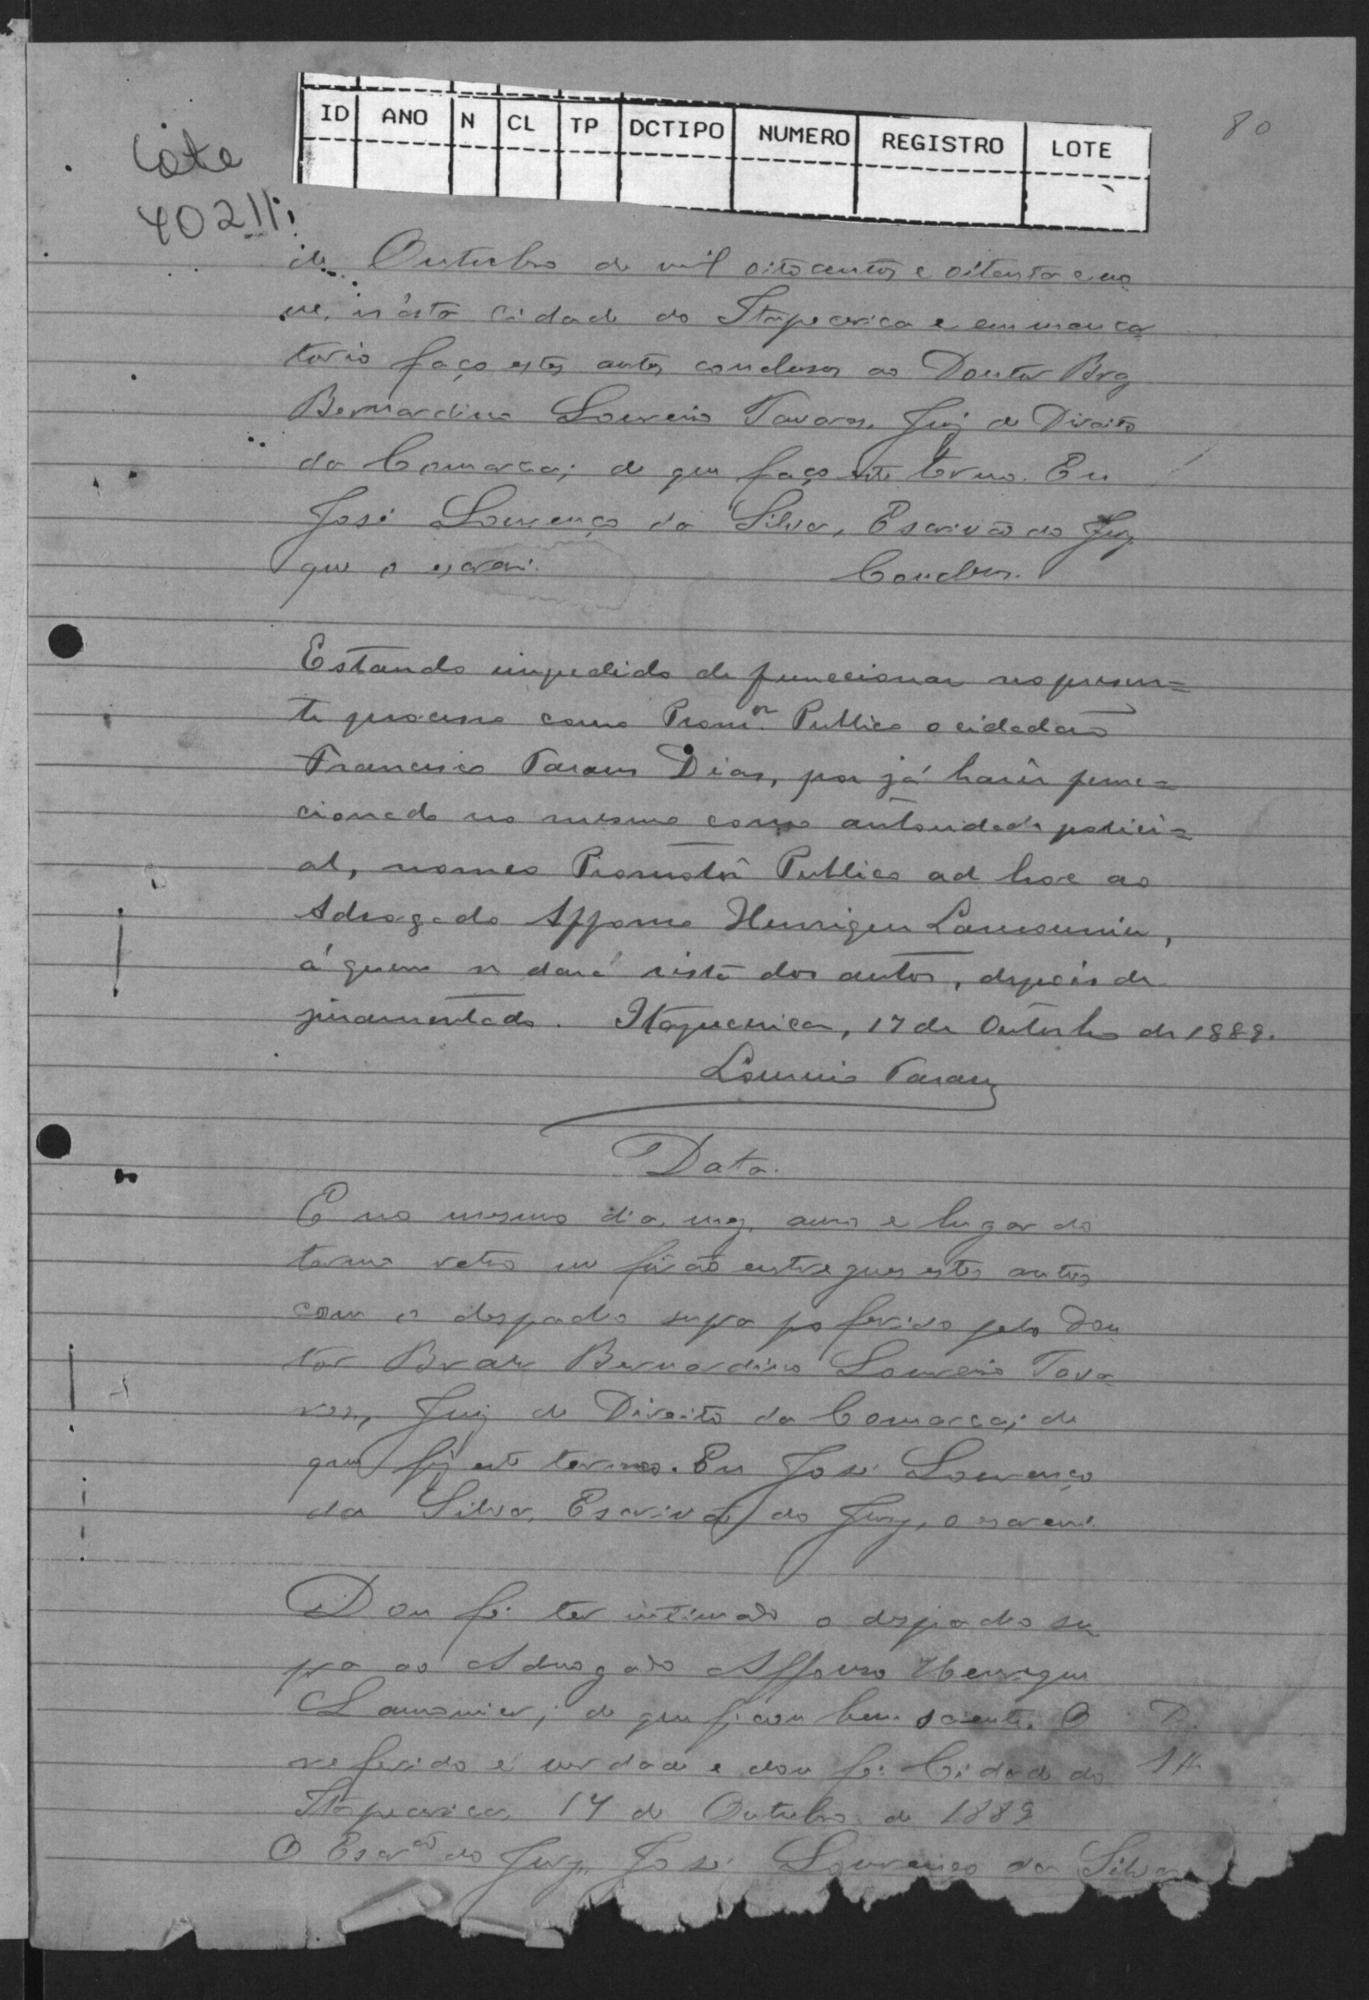 80
ID ANO N CL TP DCTIPO NUMERO REGISTRO LOTE
Lote
40211
de Outubro de mil oitocentos e oitenta e no
ve, n'esta Cidade do Itapecerica e em meu car
torio faço estes autos conclusos ao Doutor Braz
Bernardino Loureiro Tavares, Juiz de Direito
da Comarca; de que faço este termo. Eu
José Lourenço da Silva, Escrivão do Jury
que o escrevi. Conclusos.
Estando impedido de funccionar no presen=
te processo como Promor. Publico o cidadão
Francisco Tavares Dias, por já haver func=
cionado no mesmo como autoridade polici=
al, nomeo Promotor Publico ad hoc ao
Advogado Affonso Henrique Lamounier,
á quem se dará vista dos autos, depois de
juramentado. Itapecerica, 17 de Outubro de 1889.
Loureiro Tavares
Data.
E no mesmo dia, mez, anno e lugar do
termo retro me forão entregues estes autos
com o despacho supra proferido pelo Dou
tor Braz Bernardino Loureiro Tava
res, Juiz de Direito da Comarca; de
que fiz este termo. Eu José Lourenço
da Silva, Escrivão do Jury, o escrevi.
Dou fé ter intimado o despacho su
pra ao Advogado Affonso Henrique
Lamounier; de que ficou bem sciente. O
referido é verdade e dou fé. Cidade do
Itapecerica, 17 de Outubro de 1889
O Escram do Jury, José Lourenço da Silva